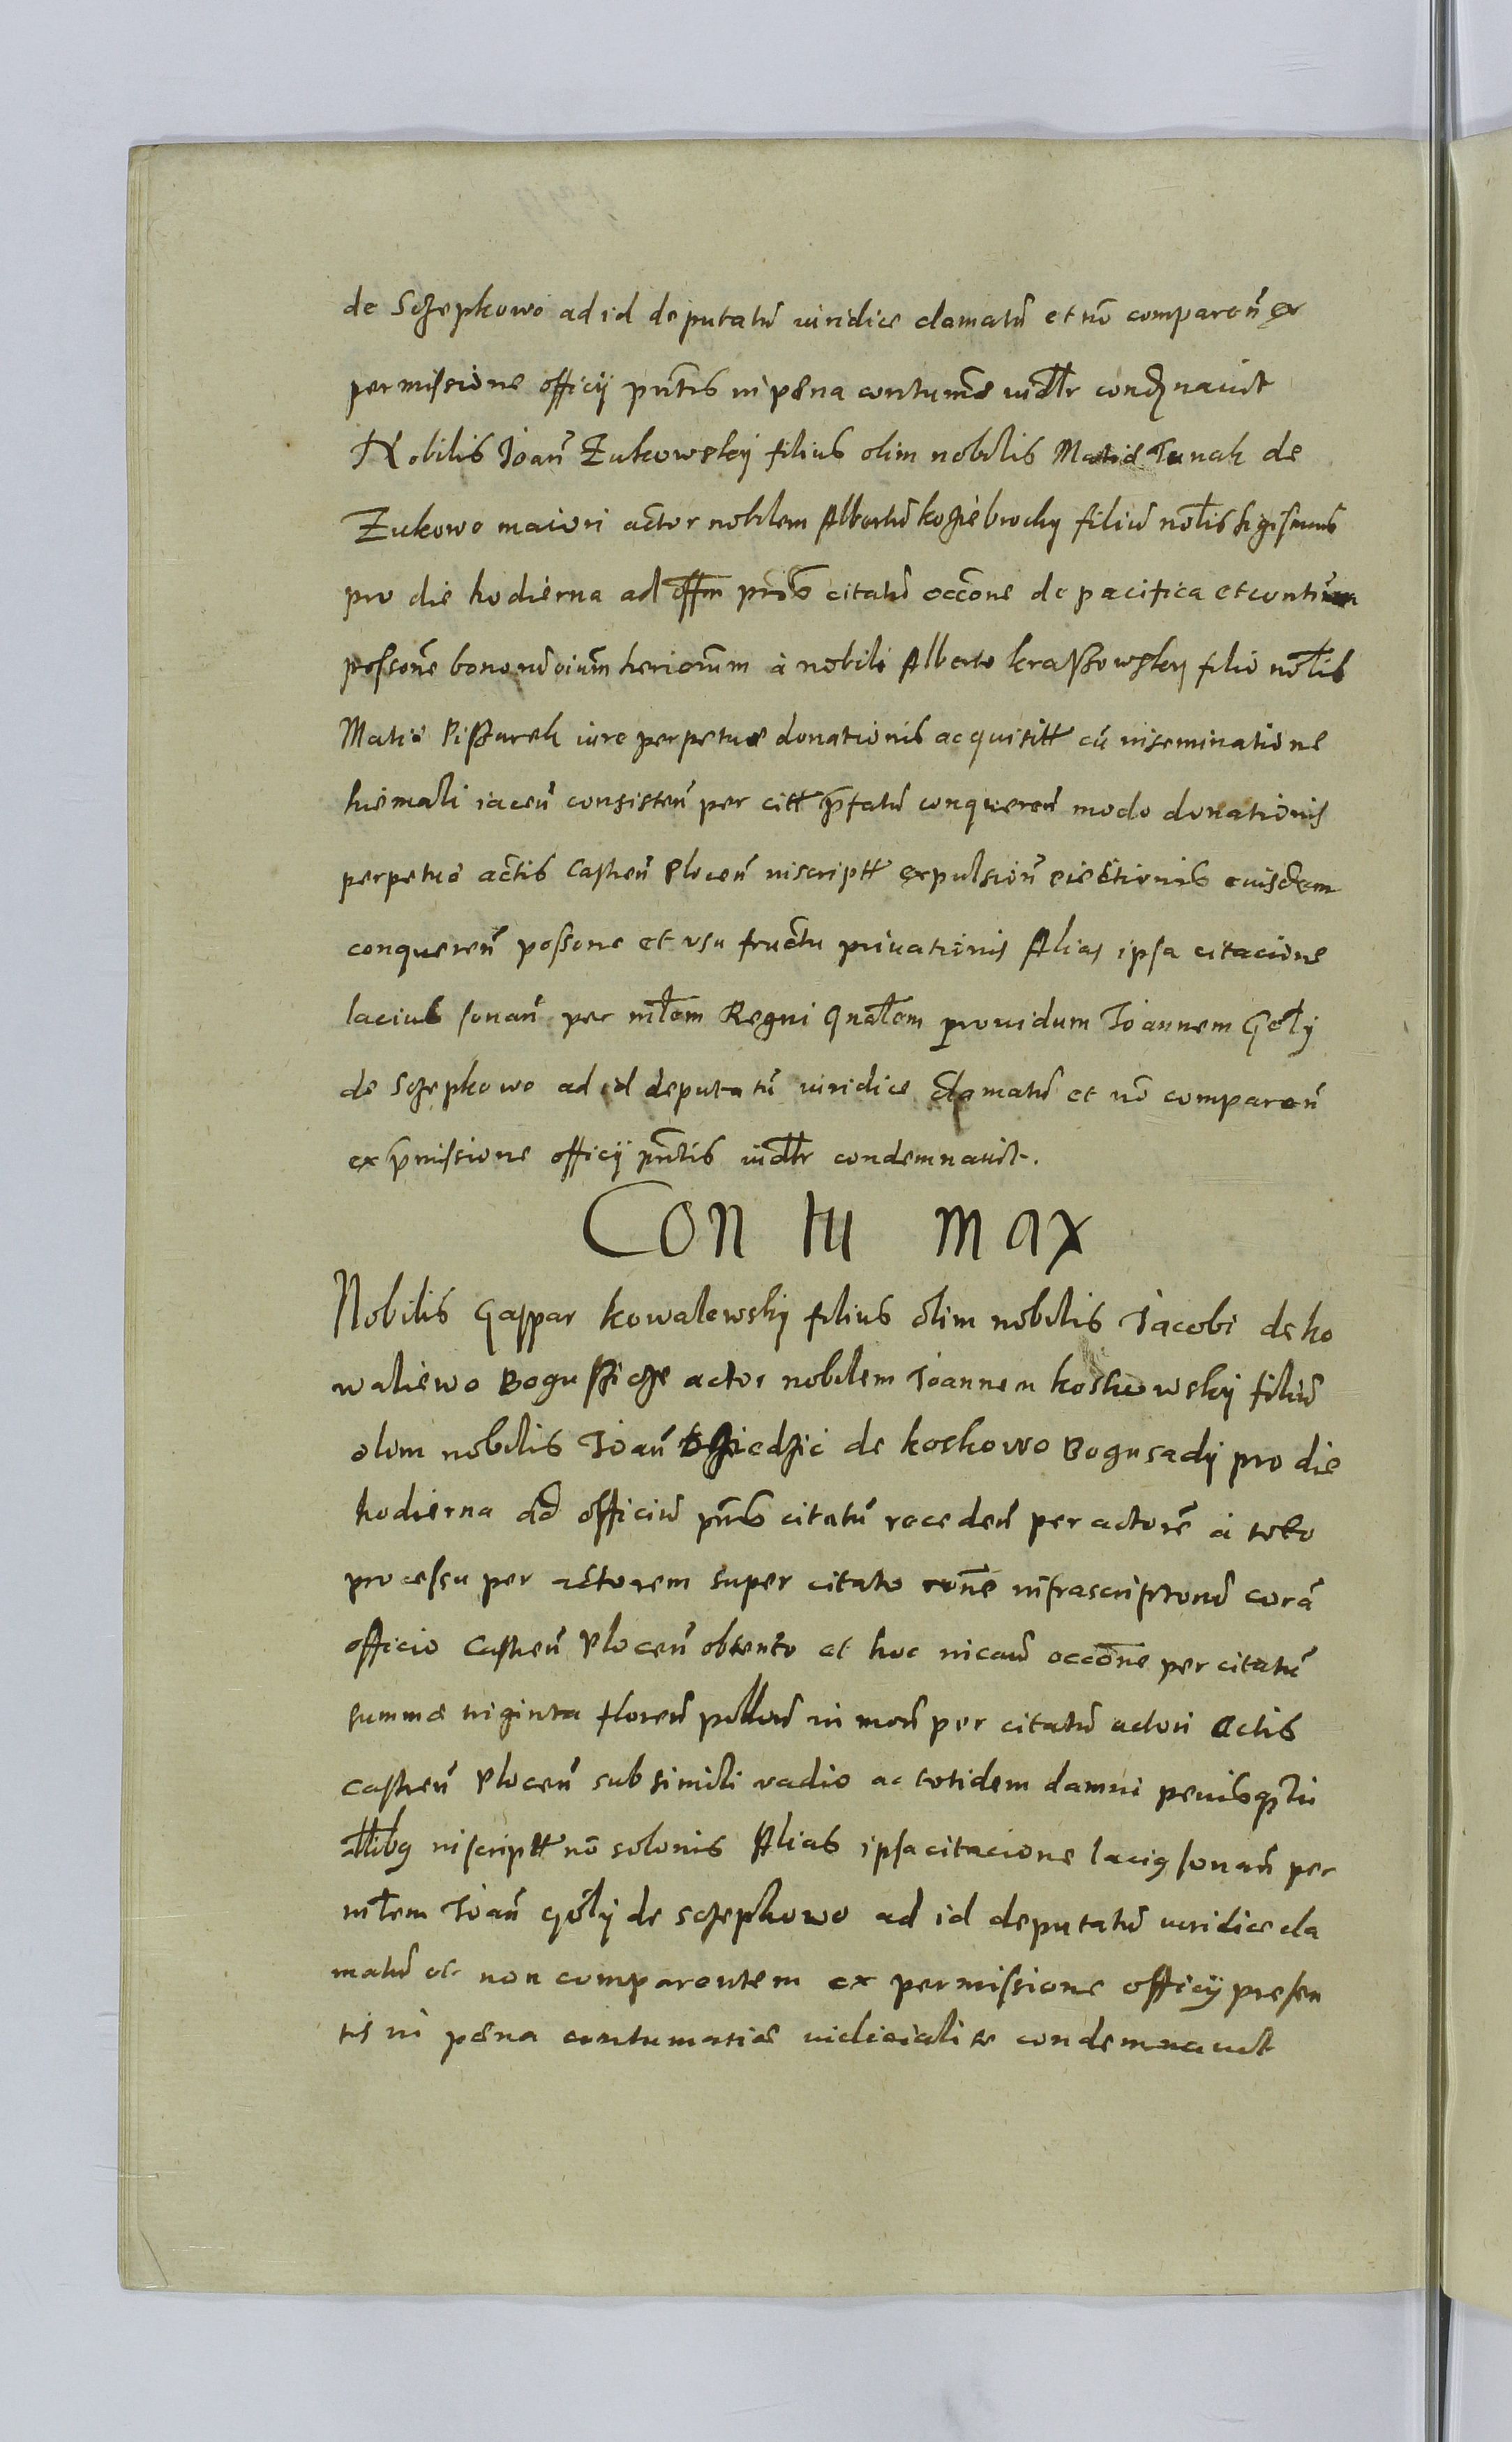 de Sczepkowo ad id deputatũ iuridice clamatũ et nõ comparen̄ ex
permissione officij pn̄tis in pœna contumãe iud̃lr condẽnavit
Nobilis Joan̄ Zukowskij filius olim nobilis Matiæ Junak de
Zukowo maiori actor nobilem Albertũ koziebrocky filiũ nob̃lis Sigismũs
pro die hodierna ad off̃m pñs citatũ occõne de pacifica et
possõne bonorũ oiũm heriorũm à nobili Alberto kraszowskij filio nob̃lis
Matiæ Piszurek iure perpetuæ donationis acquisitt cũ inseminatione
hiemali iacen̄ consisten̄ per citt p̃fatũ conqueren̄ modo donationis
perpetuæ actis Castren̄ Plocen̄ inscriptt expulsion̄ eiectionis eiusdem
conqueren̄ possone et usu fructu privationis Alias ipsa citacione
lacius sonan̄ per mr̃lem Regni gnãlem providum Joannem Goły
de Sczepkowo ad id deputatũ iuridice clamatũ et nõ comparen̄
ex p̃missione officij pñtis iud̃lr condemnavit.
Con tu max
Nobilis Gaspar kowalewskij filius olim nobilis Jacobi de ko
walewo Bogussicze actor nobilem Joannem koskowskij filiũ
olim nobilis Joan̄ Dziedzic de koskowo Bogusady pro die
hodierna ad officiũ pñs citatũ receden̄ per actorẽ à toto
processu per actorem super citato rõne infrascriptorũ corã
officio Castren̄ Plocen̄ obtento et hoc nicaũ occõne per citatũ
summæ triginta floren̄ pollon̄ in mon̄ per citatũ actori actis
Castren̄ Plocen̄ sub simili vadio ac totidem damni
inscriptt nõ solonis Alias ipsa citacione lacius sonan̄ per
mr̃lem Joan̄ Goły de Sczepkowo ad id deputatũ iuridice cla
matũ et non comparentem ex permissione officij presen
tis in pœna contumatiæ iudicialiter condemnavit